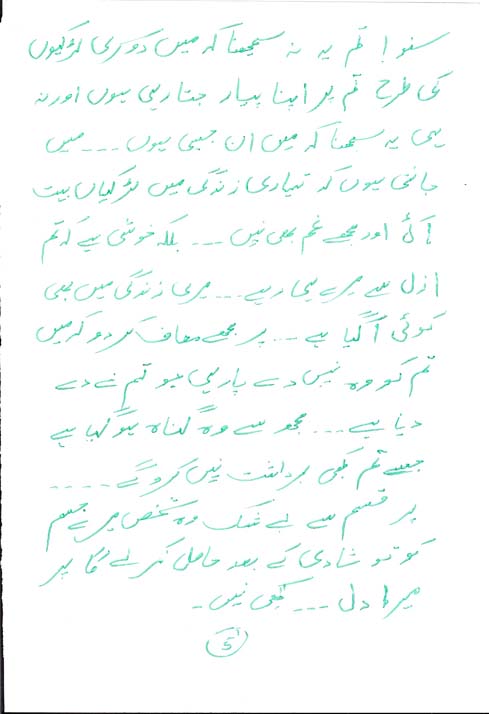 سنو! تم یہ نہ سمجھنا کہ میں دوسری لڑکیوں
کی طرح تم پر اپنا پیار جتا رہی ہوں اور نہ
ہی یہ سمجھنا کہ میں ان جیسی ہوں ۔۔۔ میں
جانتی ہوں کہ تمہاری زندگی میں لڑکیاں بہت
آئی اور مجھے غم بھی نہیں ۔۔۔ بلکہ خوشی ہے کہ تم
ازل سے میرے ہی رہے ۔۔۔ میری زندگی میں بھی
کوئی آ گیا ہے ۔۔۔ پر مجھے معاف کر دو کہ میں
تم کو وہ نہیں دے پا رہی جو تم نے دے
دیا ہے ۔۔۔ مجھ سے وہ گناہ ہو گیا ہے
جسے تم کبھی برداشت نہیں کرو گے ۔۔۔۔
پر قسم سے بے شک وہ شخص میرے جسم
کو تو شادی کے بعد حاصل کر لے گا پر
میرا دل ۔۔۔ کبھی نہیں ۔